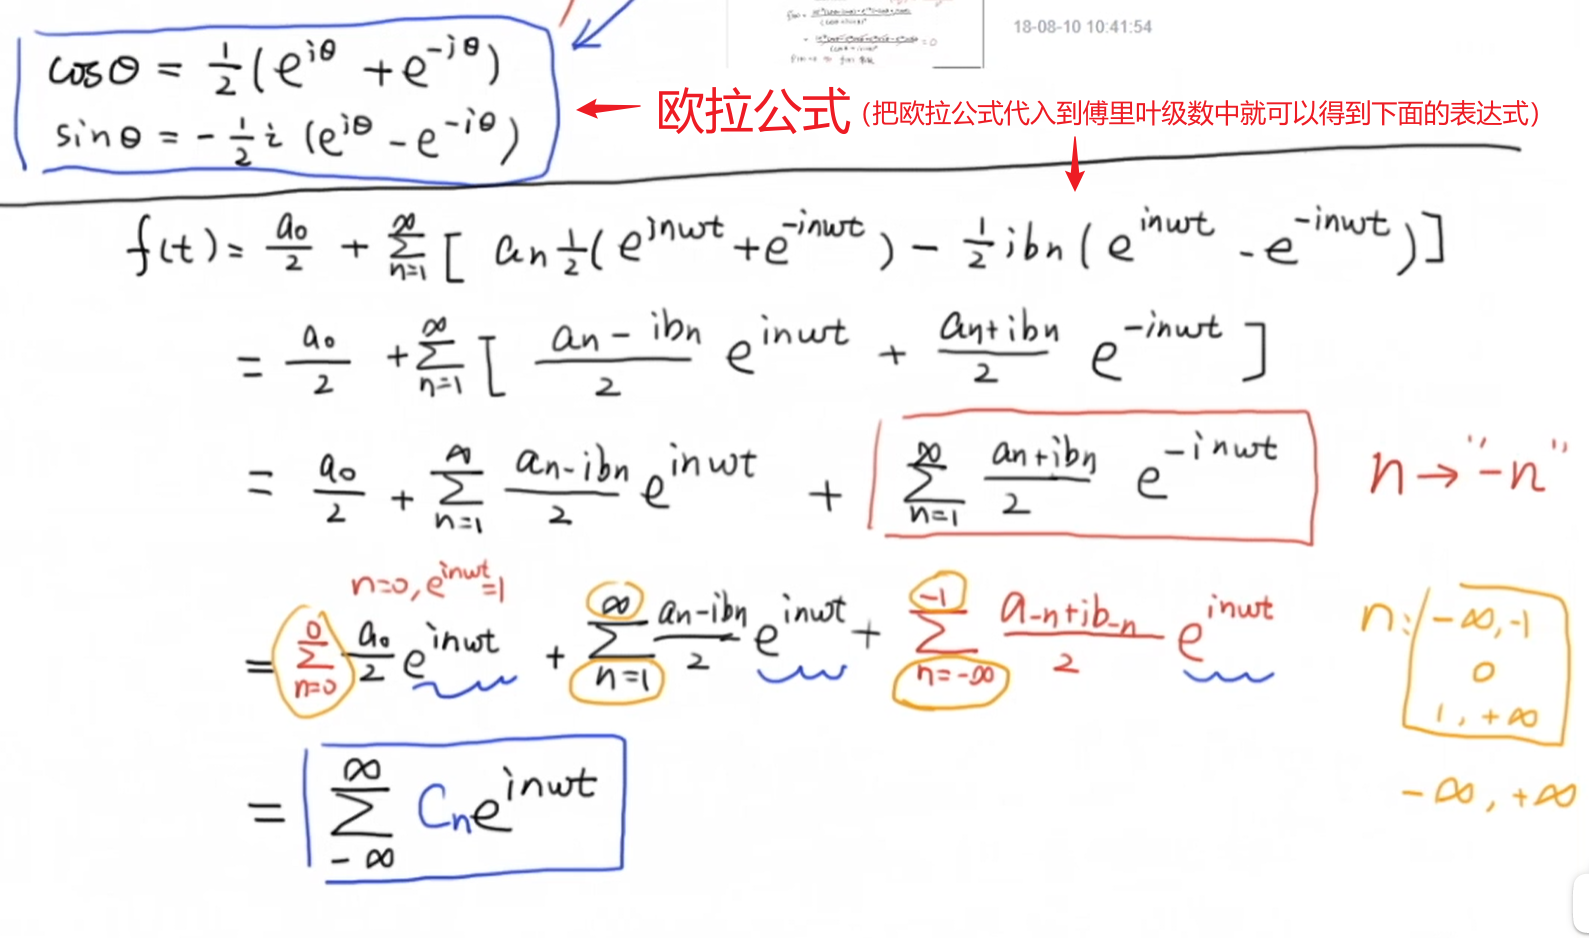 18-08-10 10:41:54
cosθ = 1/2 (e^{iθ} + e^{-iθ})
sinθ = - 1/2 i (e^{iθ} - e^{-iθ})
欧拉公式（把欧拉公式代入到傅里叶级数中就可以得到下面的表达式）
f(t) = a₀/2 + ∑_{n=1}^{∞} [ aₙ 1/2 (e^{inωt} + e^{-inωt}) - 1/2 i bₙ (e^{inωt} - e^{-inωt}) ]
= a₀/2 + ∑_{n=1}^{∞} [ (aₙ - ibₙ)/2 e^{inωt} + (aₙ + ibₙ)/2 e^{-inωt} ]
= a₀/2 + ∑_{n=1}^{∞} (aₙ - ibₙ)/2 e^{inωt} + ∑_{n=1}^{∞} (aₙ + ibₙ)/2 e^{-inωt} n → "-n"
n=0, e^{inωt} = 1
= ∑_{n=0}^{0} a₀/2 e^{inωt} + ∑_{n=1}^{∞} (aₙ - ibₙ)/2 e^{inωt} + ∑_{n=-∞}^{-1} (a₋ₙ + ib₋ₙ)/2 e^{inωt}
n: -∞, -1
0
1, +∞
-∞, +∞
= ∑_{-∞}^{∞} Cₙ e^{inωt}